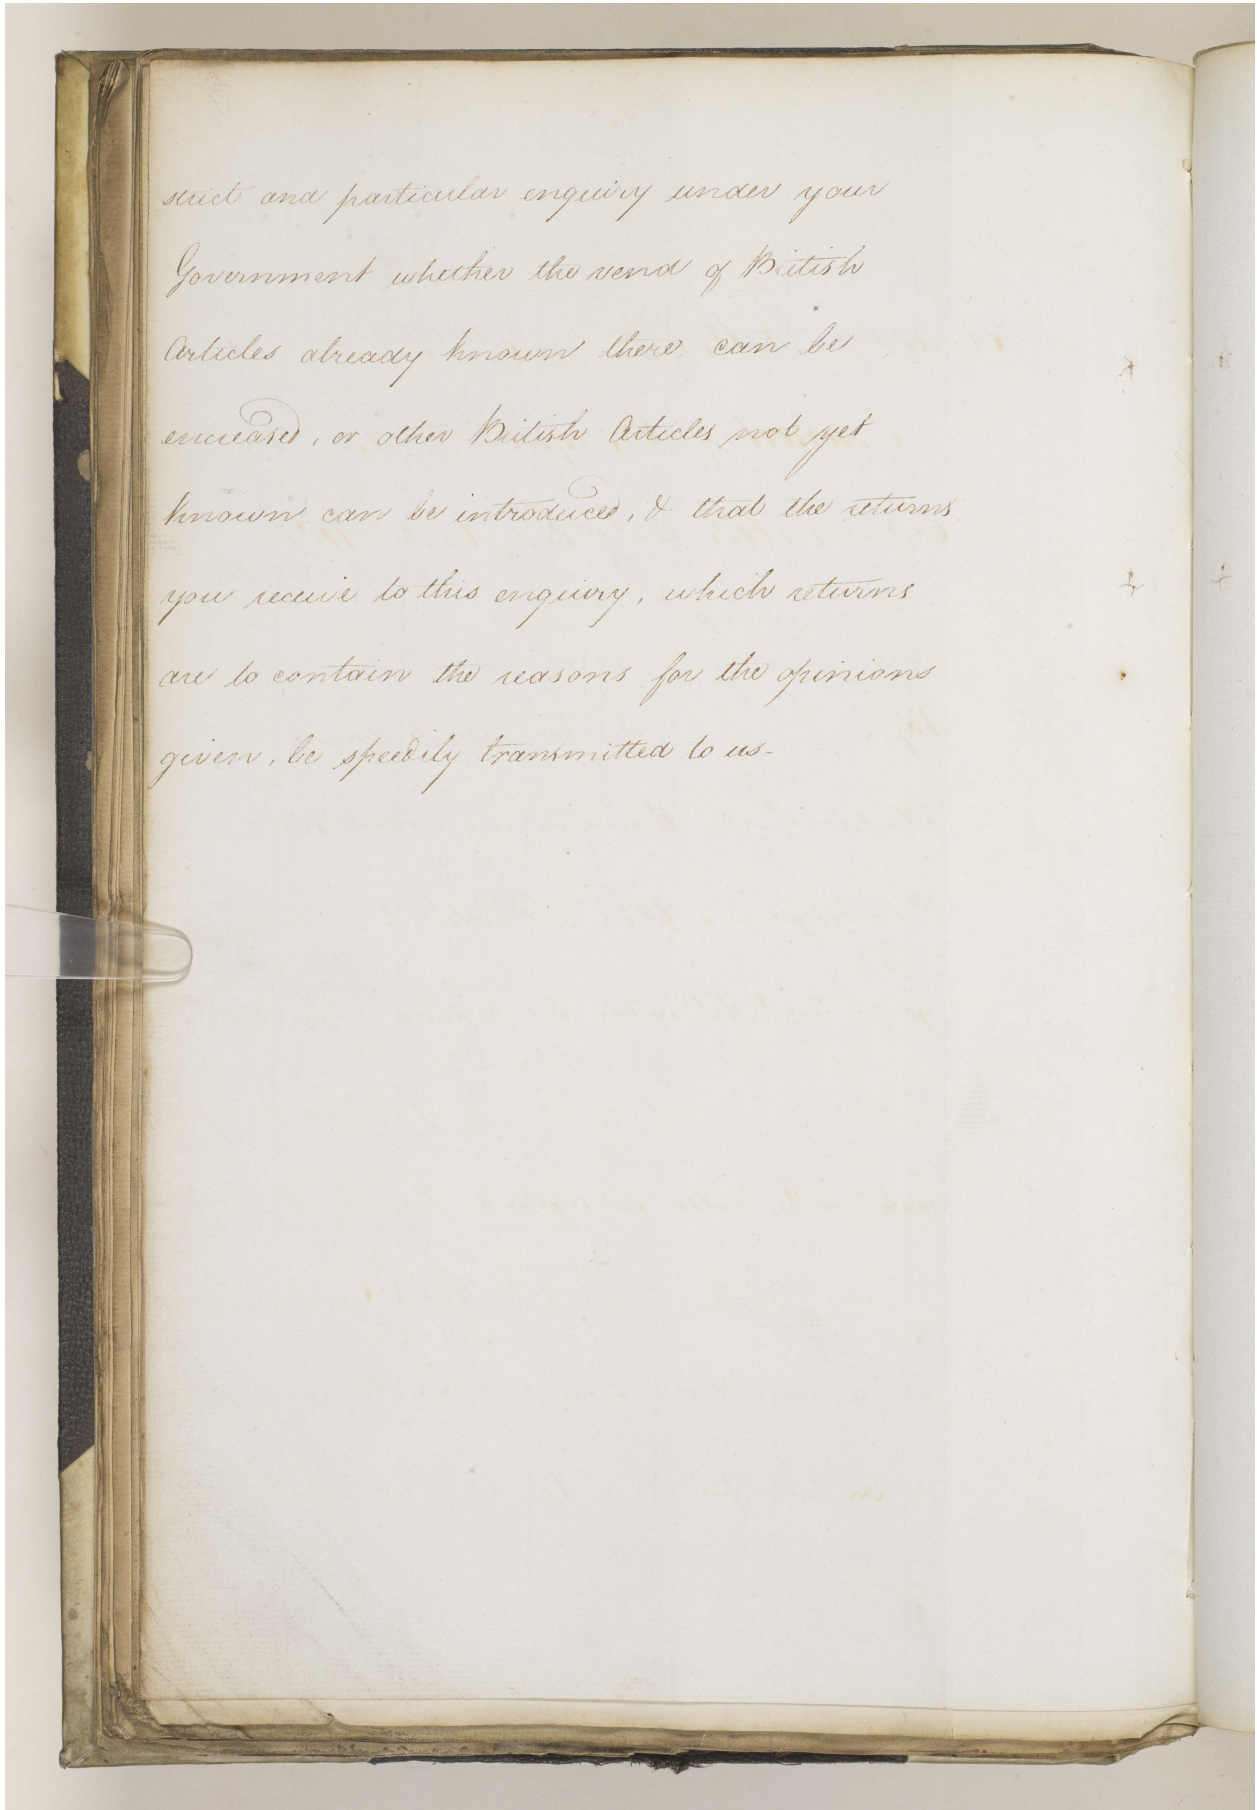 strict and particular enquiry under your
Government whether the vend of British
Articles already known there can be
encreased, or other British Articles not yet
known can be introduced, & that the returns
you receive to this enquiry, which returns
are to contain the reasons for the opinions
given, be speedily transmitted to us-